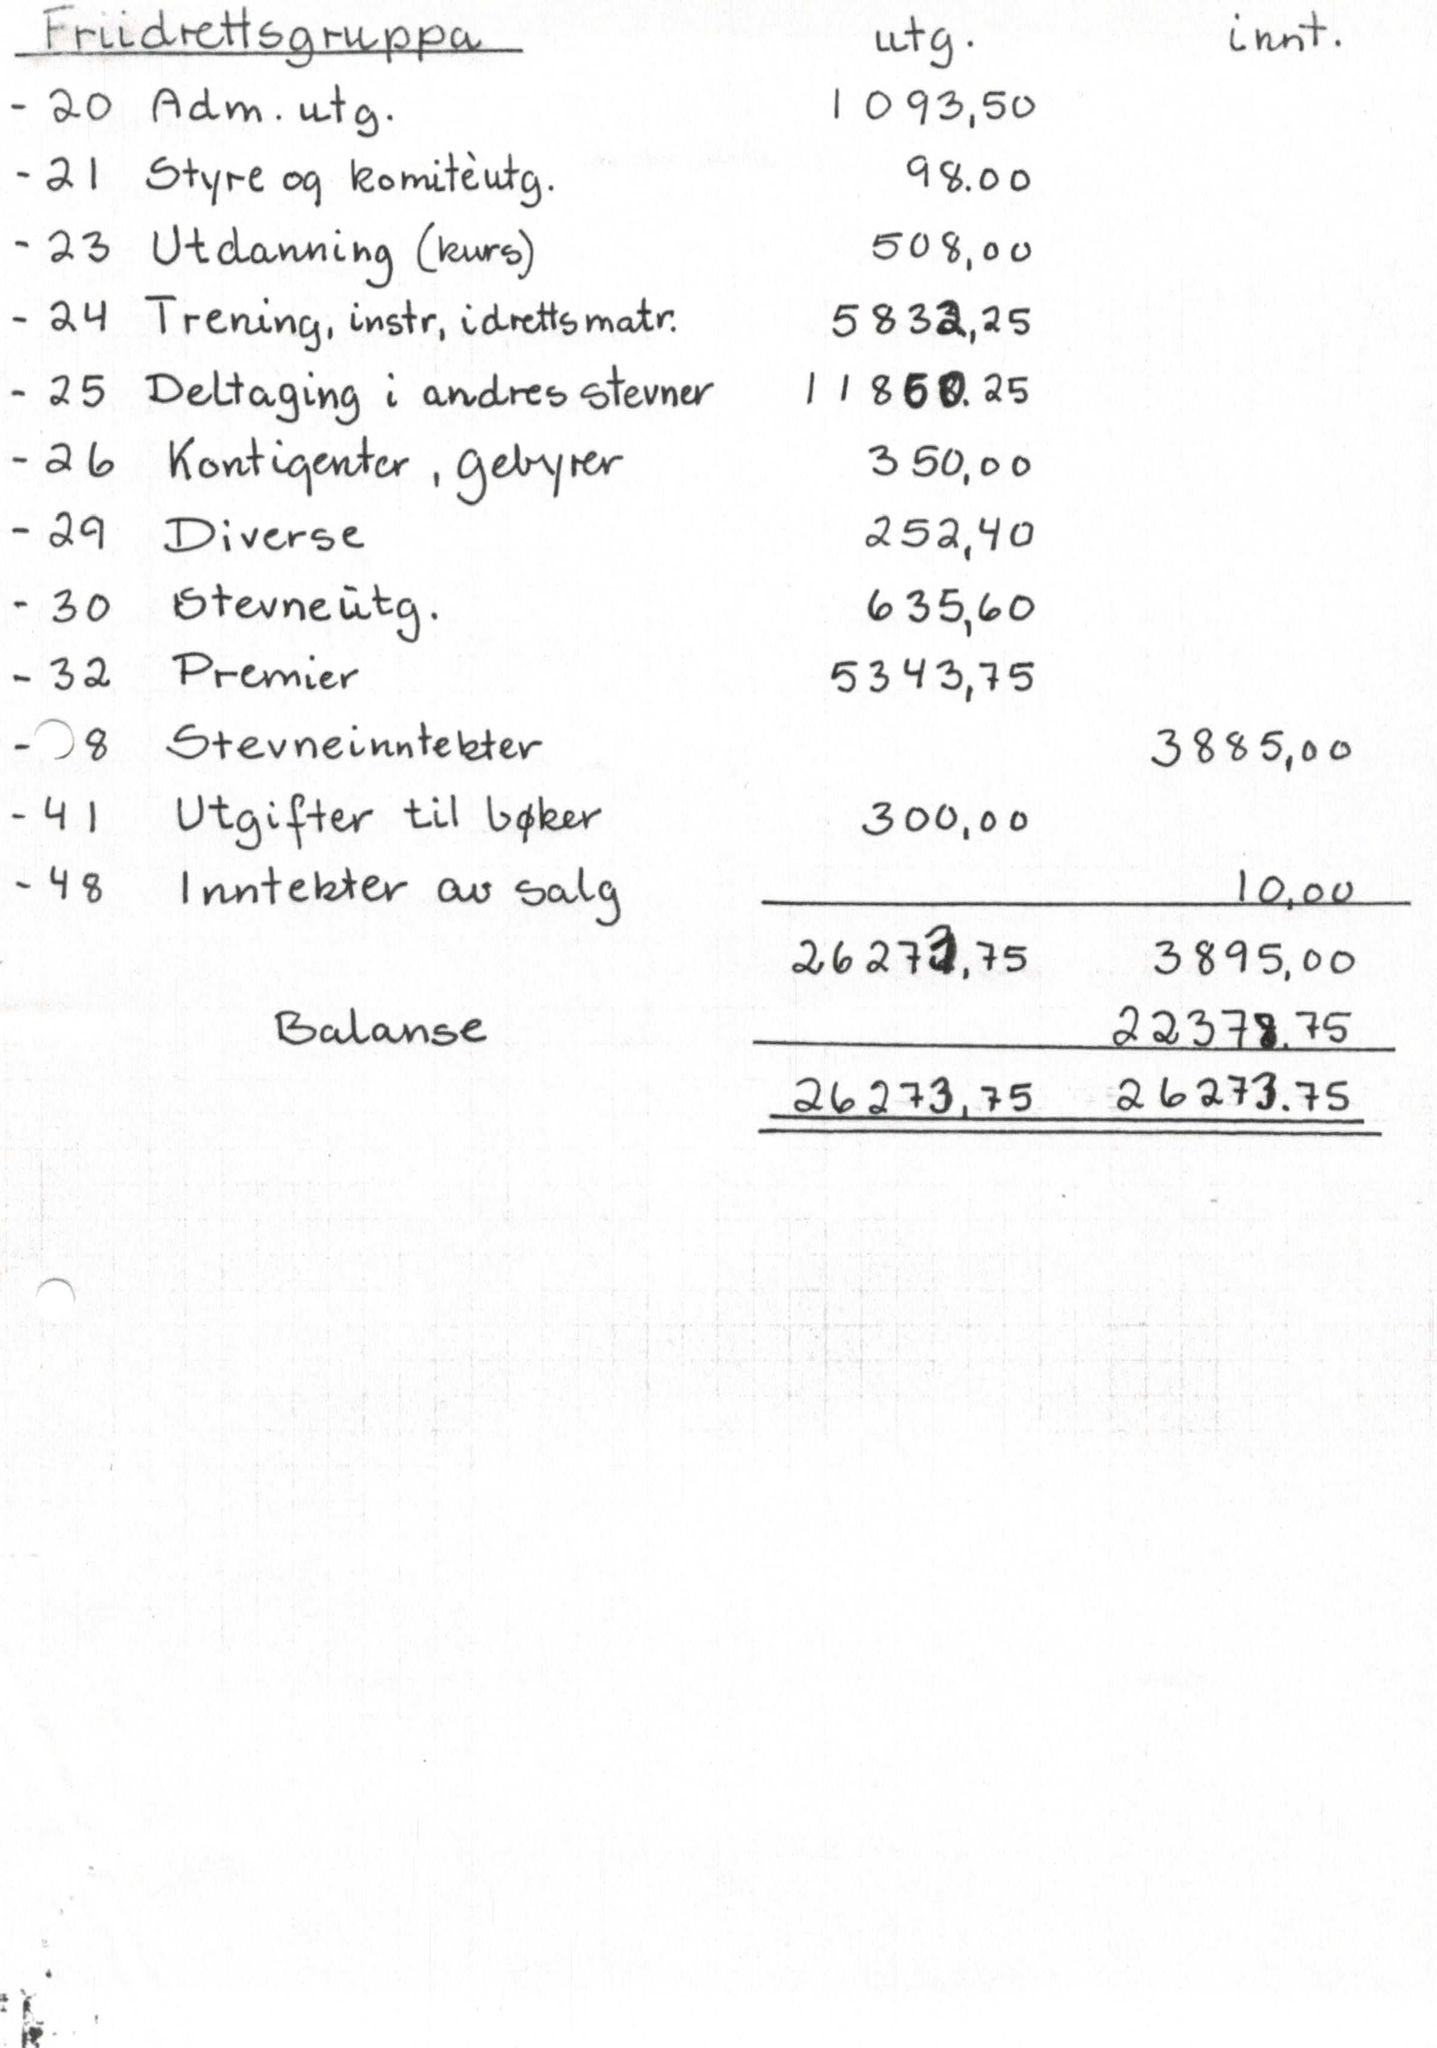 Friidrettsgruppa utg. innt.
- 20 Adm. utg. 1093,50
- 21 Styre og komitèutg. 98.00
- 23 Utdanning (kurs) 508,00
- 24 Trening, instr, idrettsmatr. 5832,25
- 25 Deltaging i andres stevner 11860.25
- 26 Kontigenter, gebyrer 350,00
- 29 Diverse 252,40
- 30 Stevneutg. 635,60
- 32 Premier 5343,75
- 8 Stevneinntekter 3885,00
- 41 Utgifter til bøker 300,00
- 48 Inntekter av salg 10,00
26273,75 3895,00
Balanse 22378.75
26273,75 26273.75